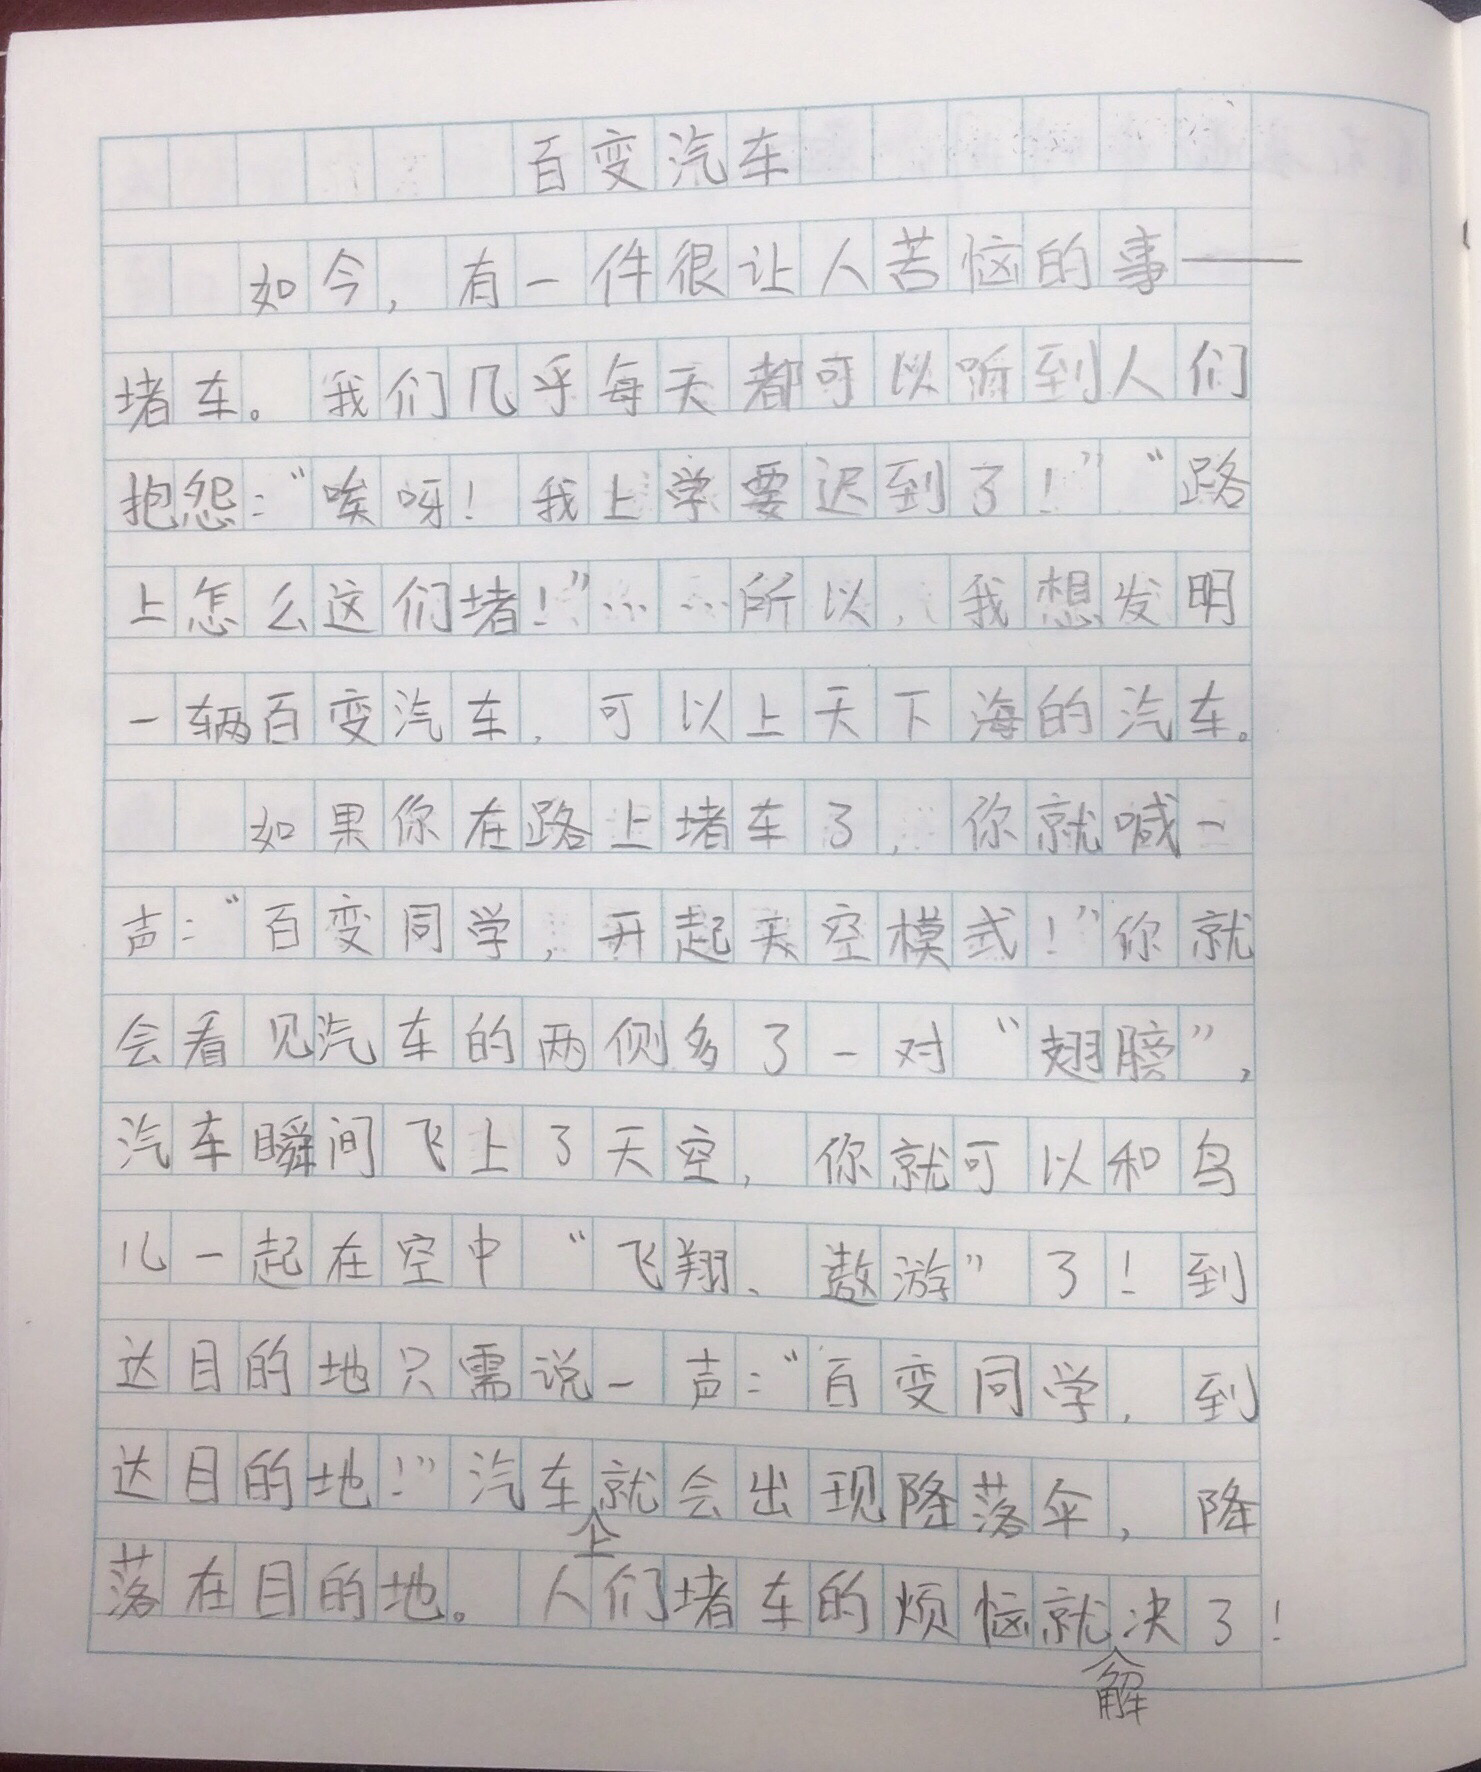 百变汽车
如今，有一件很让人苦恼的事——
堵车。我们几乎每天都可以听到人们
抱怨：“唉呀！我上学要迟到了！”“路
上怎么这们堵！”……所以，我想发明
一辆百变汽车，可以上天下海的汽车。
如果你在路上堵车了，你就喊一
声：“百变同学，开起天空模式！”你就
会看见汽车的两侧多了一对“翅膀”，
汽车瞬间飞上了天空，你就可以和鸟
儿一起在空中“飞翔、遨游”了！到
达目的地只需说一声：“百变同学，到
达目的地！”汽车上就会出现降落伞，降
落在目的地。人们堵车的烦恼就解决了！